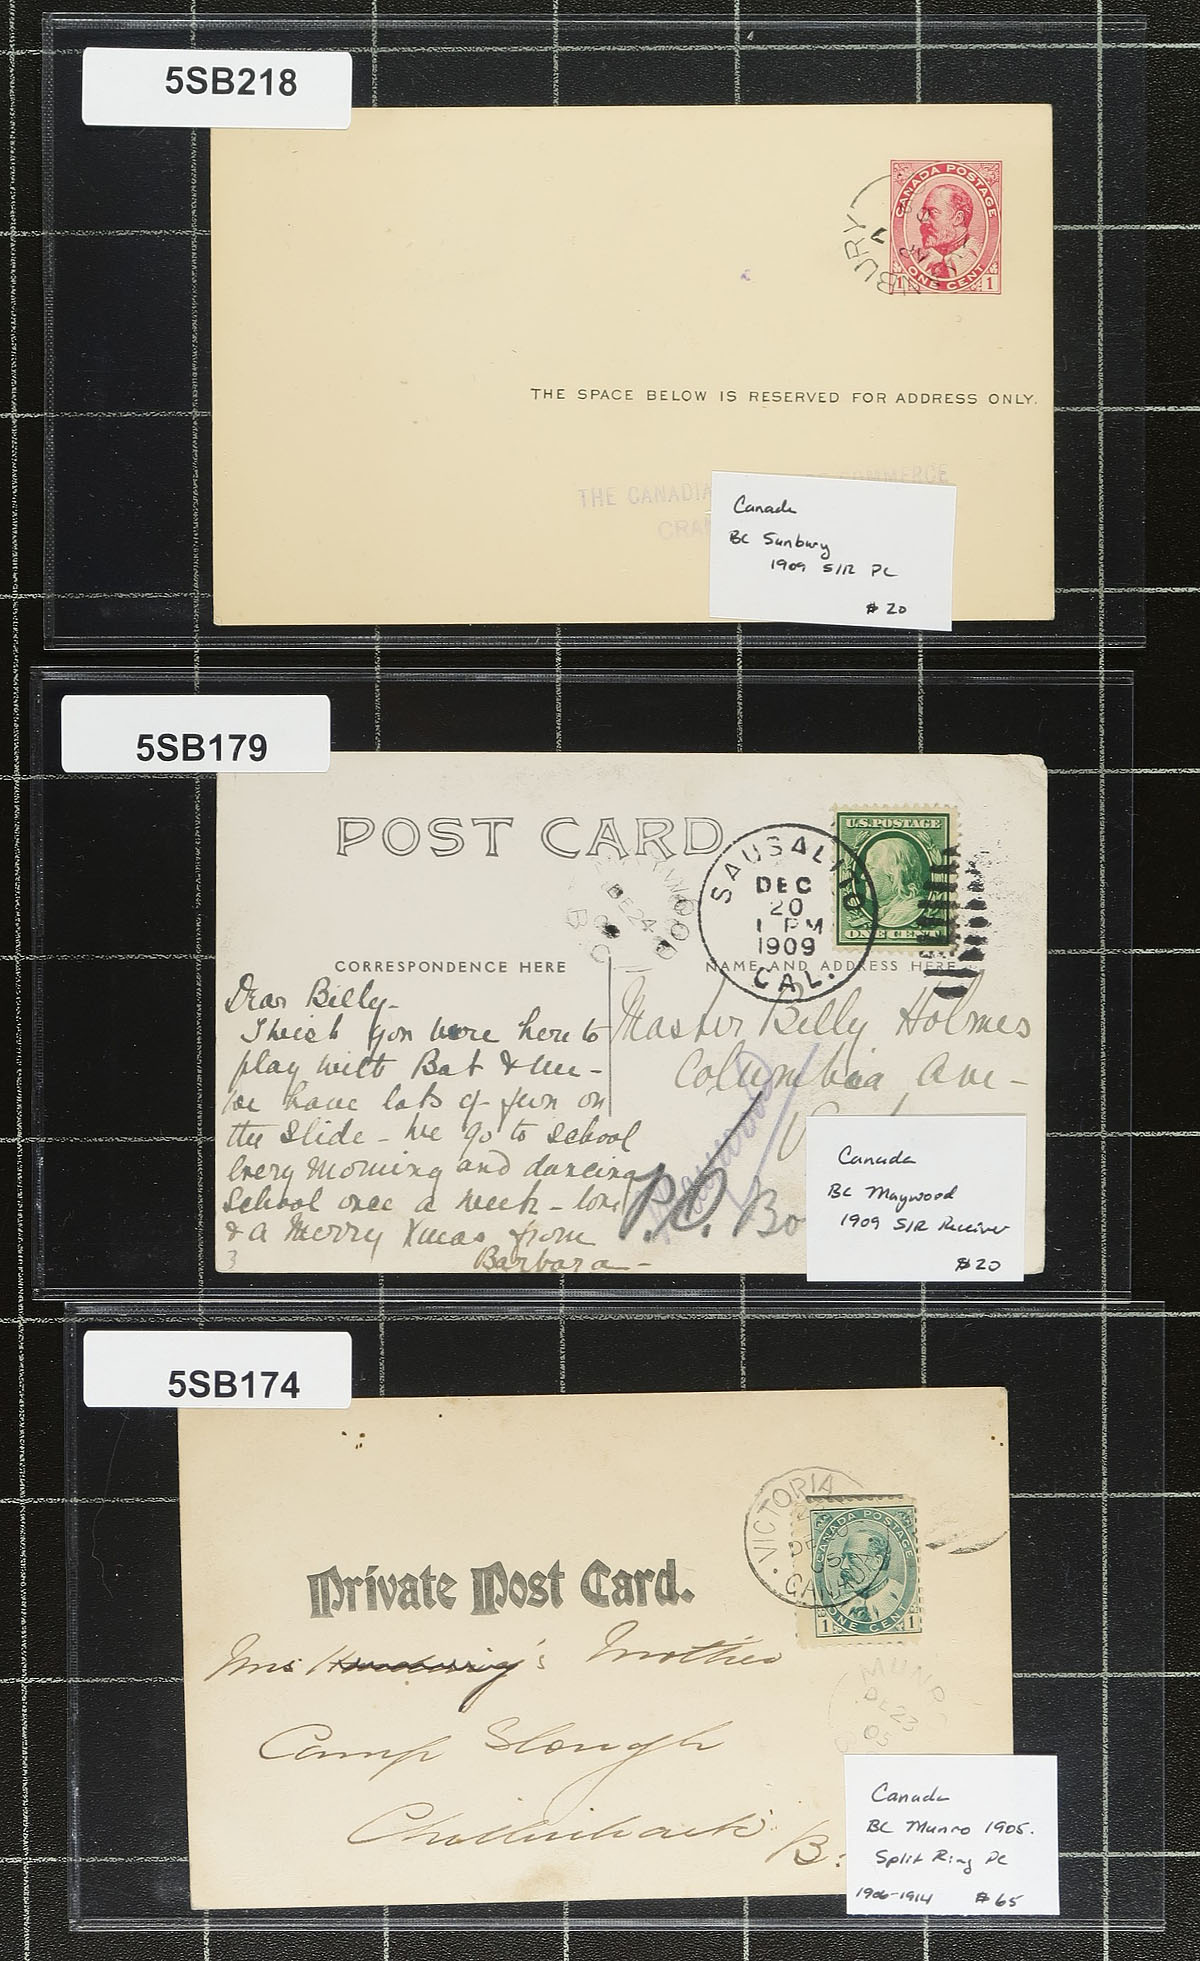 5SB218
CANADA POSTAGE
1 ONE CENT 1
NBURY
THE SPACE BELOW IS RESERVED FOR ADDRESS ONLY.
THE CANADIA COMMERCE
CRAN
Canada
BC Sunbury
1909 S/R PC
$20
5SB179
POST CARD
U.S. POSTAGE
ONE CENT
SAUSALITO
DEC
20
1 PM
1909
CAL.
YWOOD
DE 24
09
B.C
CORRESPONDENCE HERE
NAME AND ADDRESS HERE
Dear Billy-
I wish you were here to
play with Bat & me-
we have lots of fun on
the slide - We go to school
every morning and dancing
school once a week - love
& a Merry Xmas from
Barbara -
3
Master Billy Holmes
Columbia Ave-
P.O. Bo
Canada
BC Maywood
1909 S/R Receiver
$20
5SB174
VICTORIA
DE
05
CANADA
CANADA POSTAGE
1 ONE CENT 1
Private Post Card.
Mrs 's Mother
Camp Slough
Chilliwack
B.
MUNRO
DE 23
05
Canada
BC Munro 1905.
Split Ring PC
1906-1914 $65